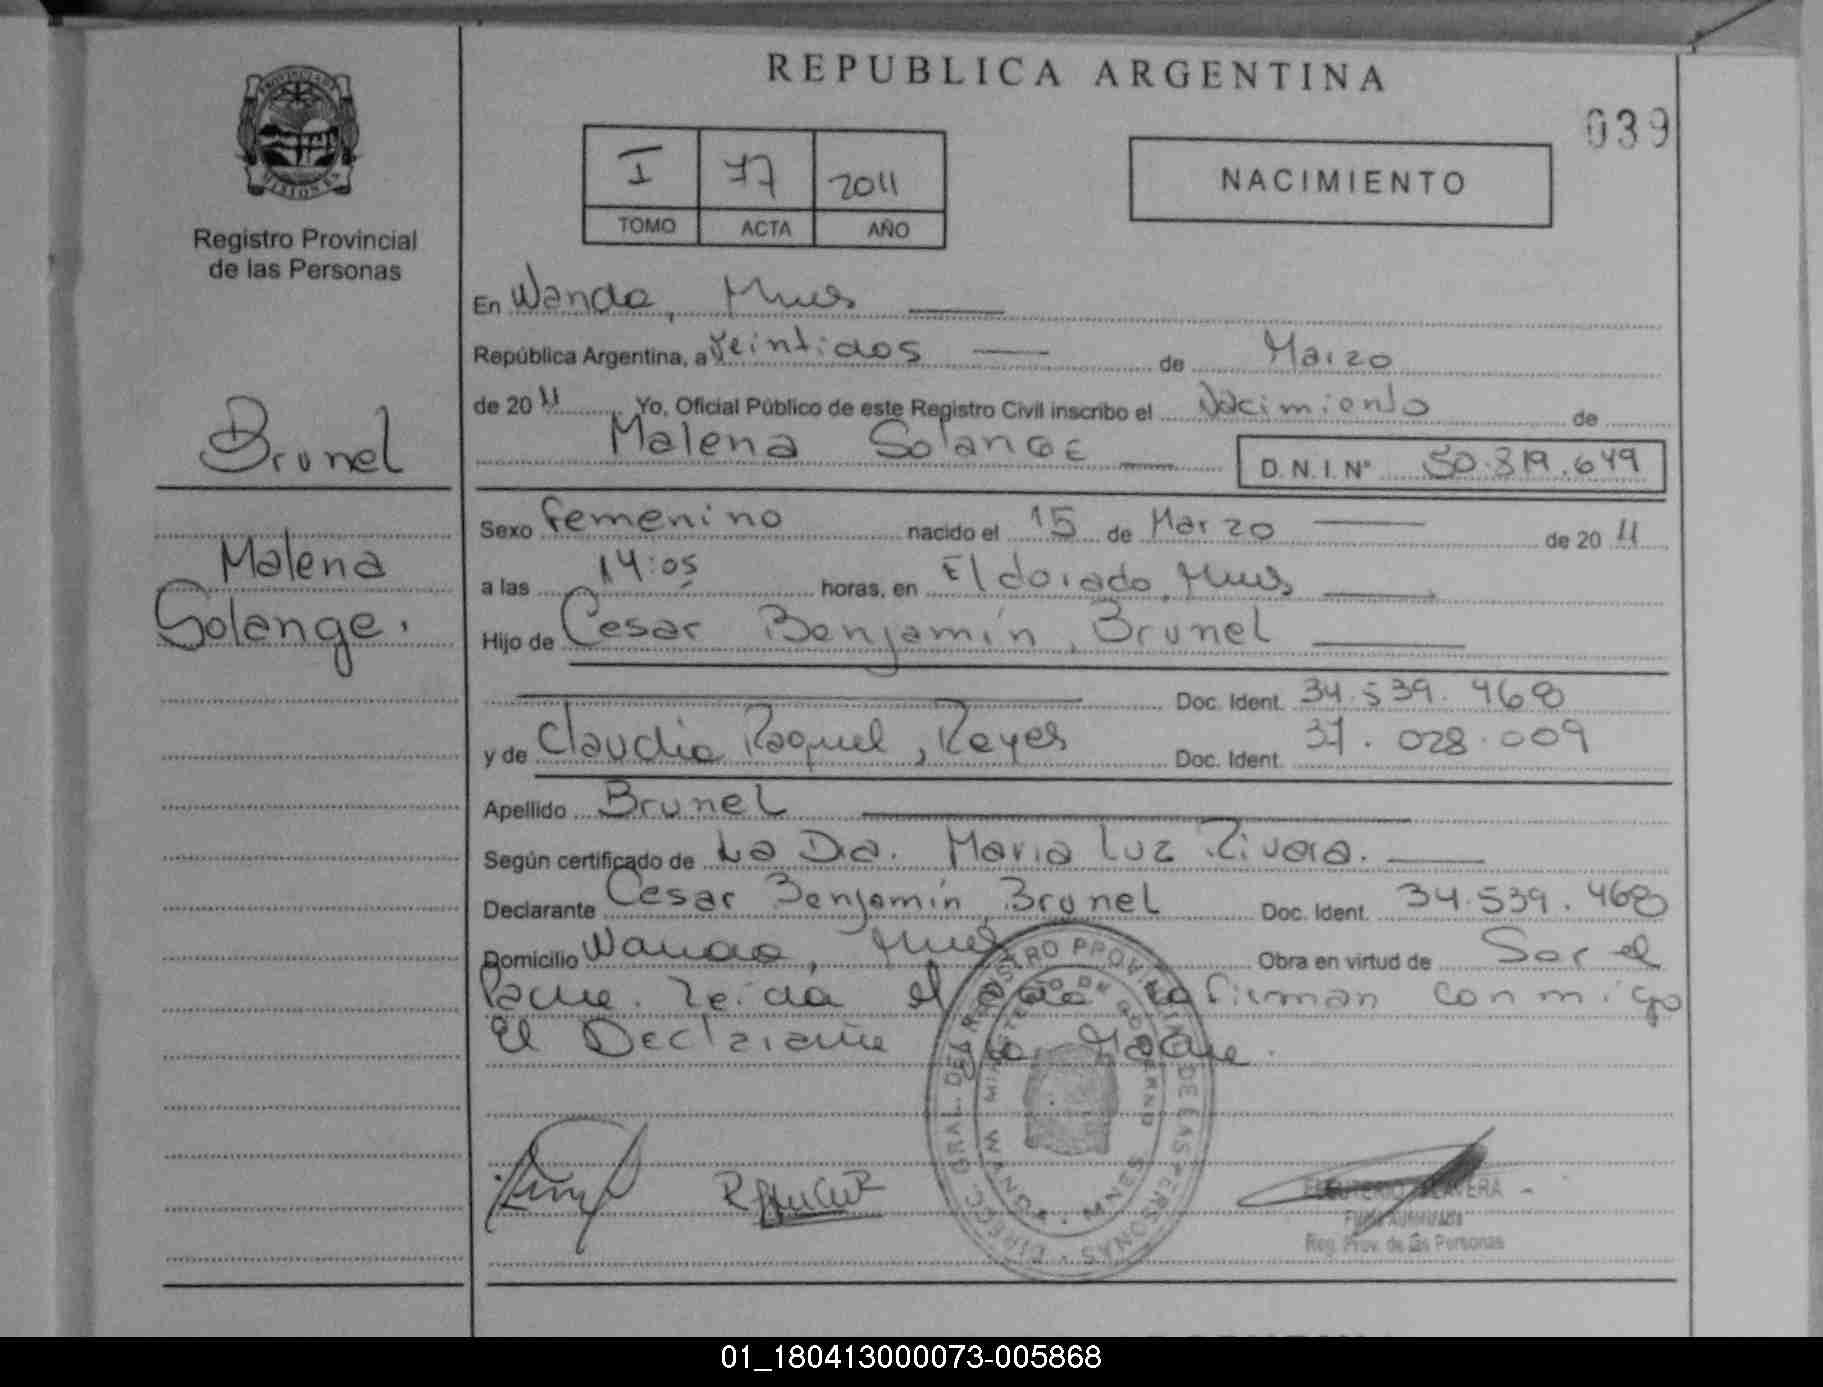 REPUBLICA ARGENTINA
039
PROVINCIA DE MISIONES
Registro Provincial
de las Personas
I 77 2011
TOMO ACTA AÑO
NACIMIENTO
Brunel
Malena
Solange.
En Wanda, Mnes
República Argentina, a Veintidos de Marzo
de 2011 Yo, Oficial Público de este Registro Civil inscribo el Nacimiento de
Malena Solange D.N.I.Nº 50.819.649
Sexo femenino nacido el 15 de Marzo de 2011
a las 14:05 horas, en Eldorado, Mnes
Hijo de Cesar Benjamín, Brunel
Doc. Ident. 34.539.468
y de Claudia Raquel, Reyes Doc. Ident. 37.028.009
Apellido Brunel
Según certificado de La Dra. Maria Luz Rivera.
Declarante Cesar Benjamín, Brunel Doc. Ident. 34.539.468
Domicilio Wanda, Mnes Obra en virtud de Ser el
Padre. Leida el acta la firman conmigo
El Declarante y la Madre.
DIRECC. GRAL. DEL REGISTRO PROVINCIAL DE LAS PERSONAS
MINISTERIO DE GOBIERNO
WANDA MNES
ELEUTERIO TALAVERA
Firma Autorizada
Reg. Prov. de las Personas
01_180413000073-005868